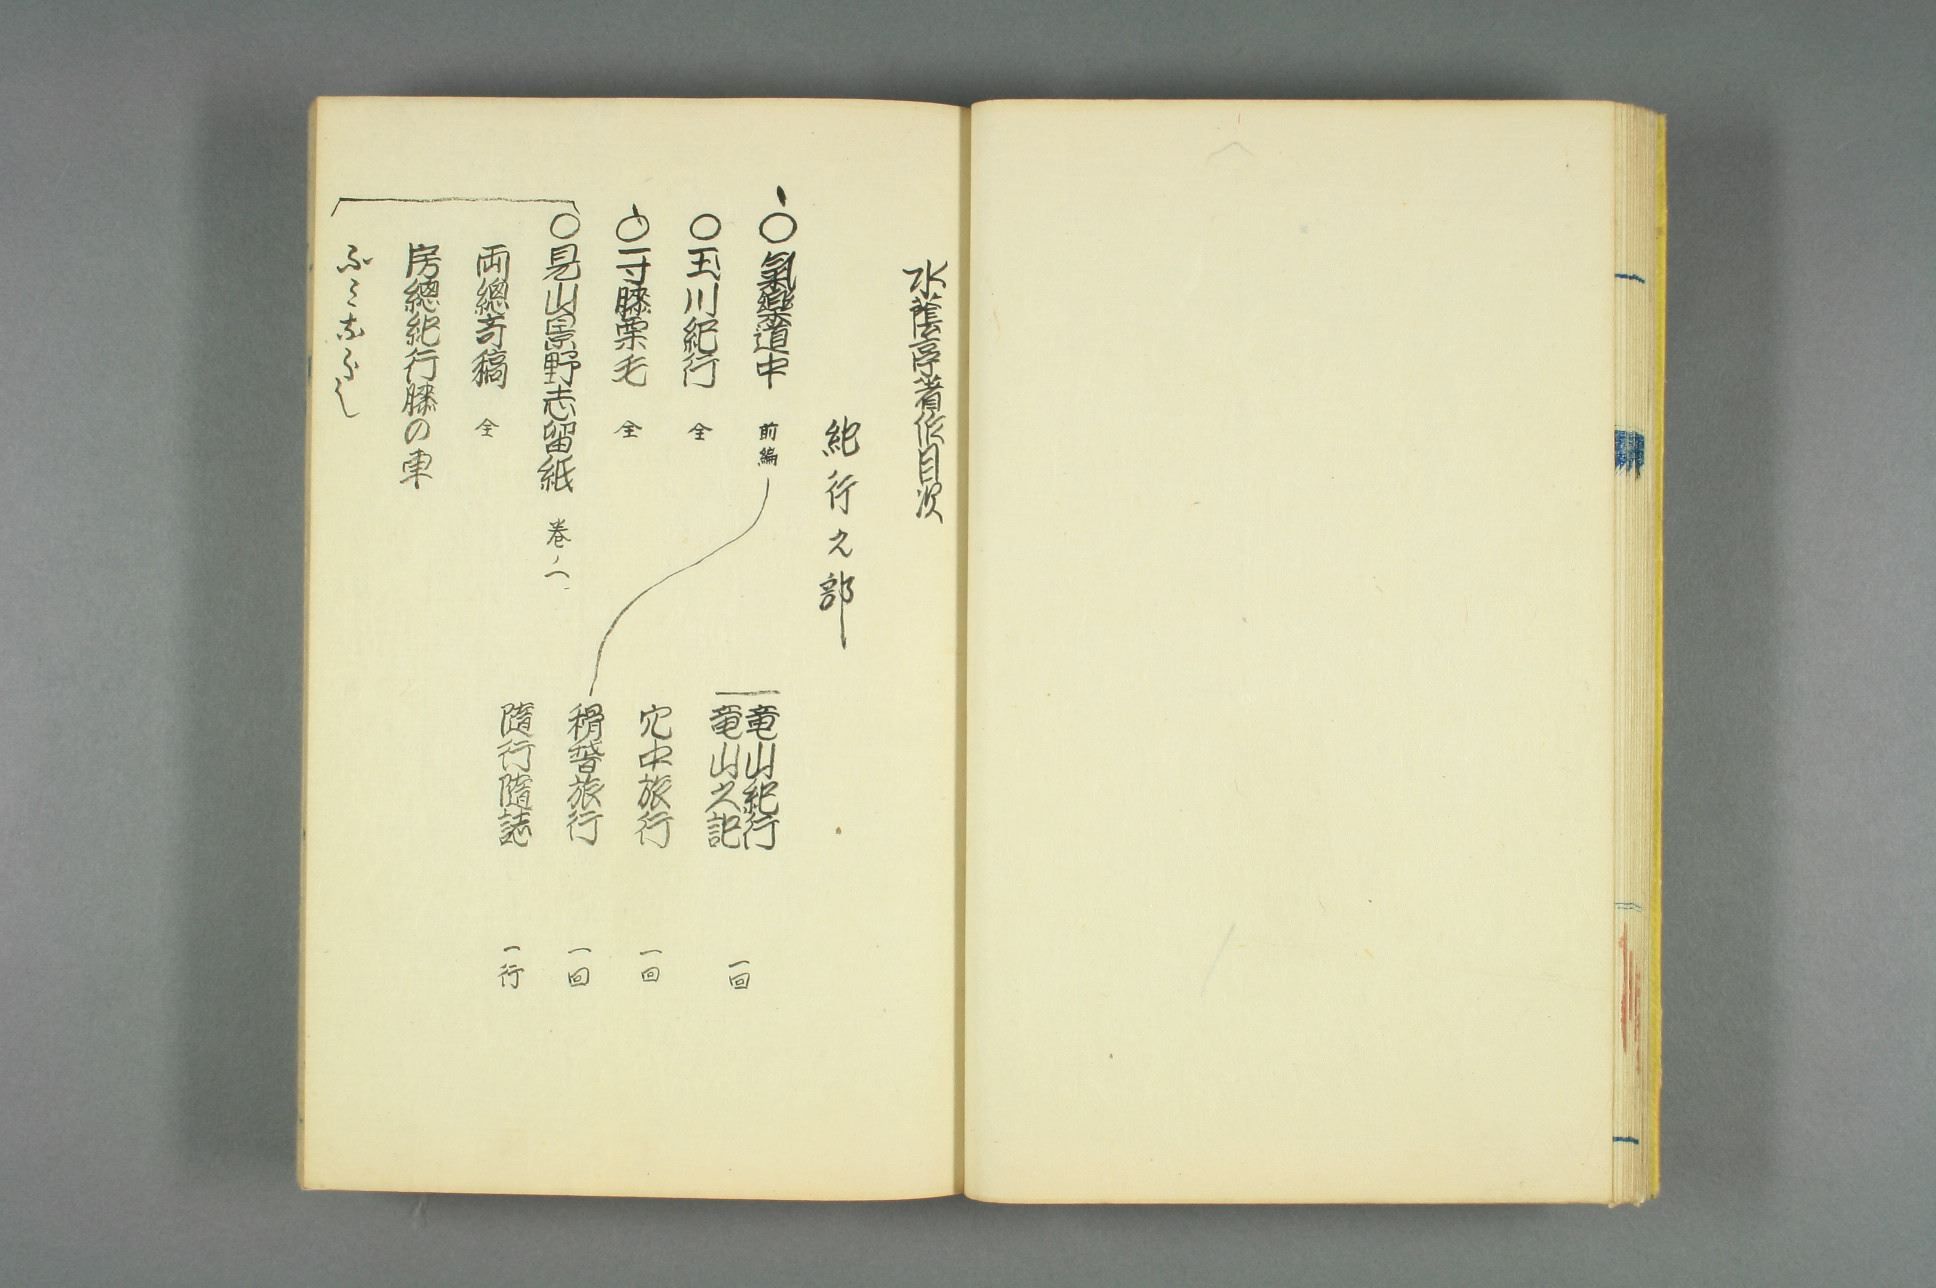 水蔭亭著作目次
紀行之部
○氣樂道中 前編
○玉川紀行 全
○一寸膝栗毛 全
○見山景野志留紙 巻ノ一
両總奇稿 全
房總紀行膝の車
竜山紀行
竜山之記 一回
穴中旅行 一回
稍㬱旅行 一回
隨行隨誌 一行